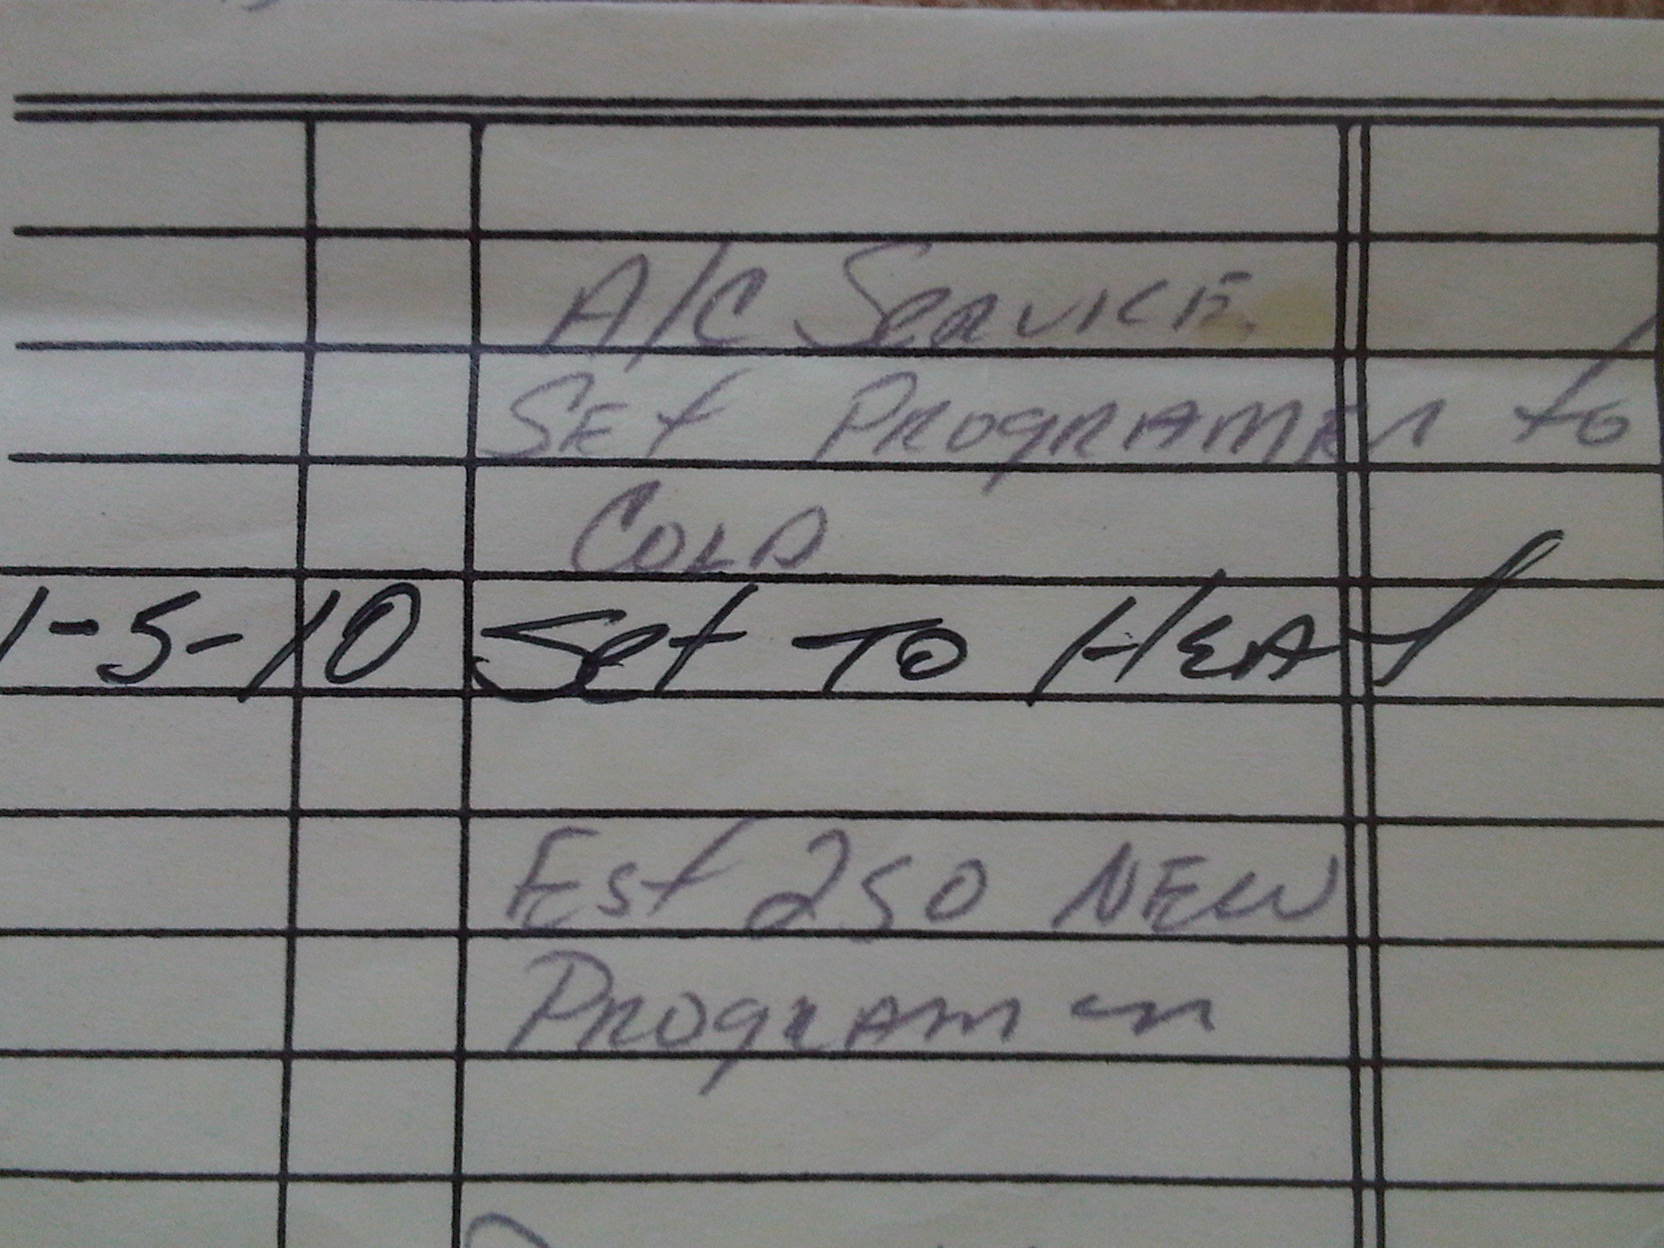 A/C SERVICE
SET PROGRAMER to
COLD
1-5-10 Set TO HEAT
Est 250 NEW
PROGRAMER